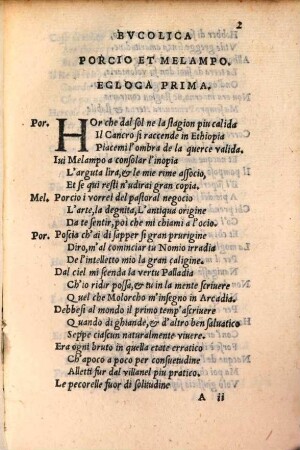 2
BVCOLICA
PORCIO ET MELAMPO.
EGLOGA PRIMA.
Por. HOr che dal sol ne la stagion piu calida
Il Cancro si raccende in Ethiopia
Placemi l'ombra de la querce valida.
Iui Melampo a consolar l'inopia
L'arguta lira, & le mie rime associo,
Et se qui resti n'udirai gran copia.
Mel. Porcio i vorrei del pastoral negocio
L'arte, la degnita, l'antiqua origine
Da te sentir, poi che mi chiami a l'ocio.
Por. Poscia ch'ai di sapper si gran prurigine
Diro, m'al cominciar tu Nomio irradia
De l'intelletto mio la gran caligine.
Dal ciel mi scenda la vertu Palladia
Ch'io ridir possa, & tu in la mente scriuere
Quel che Molorcho m'insegno in Arcadia.
Debbesi al mondo il primo temp'ascriuere
Quando di ghiande, & d'altro ben saluatico
Seppe ciascun naturalmente viuere.
Era ogni bruto in quella etate erratico
Ch'apoco a poco per consuetudine
Alletti fur dal villanel piu pratico.
Le pecorelle fuor di solitudine
A ii